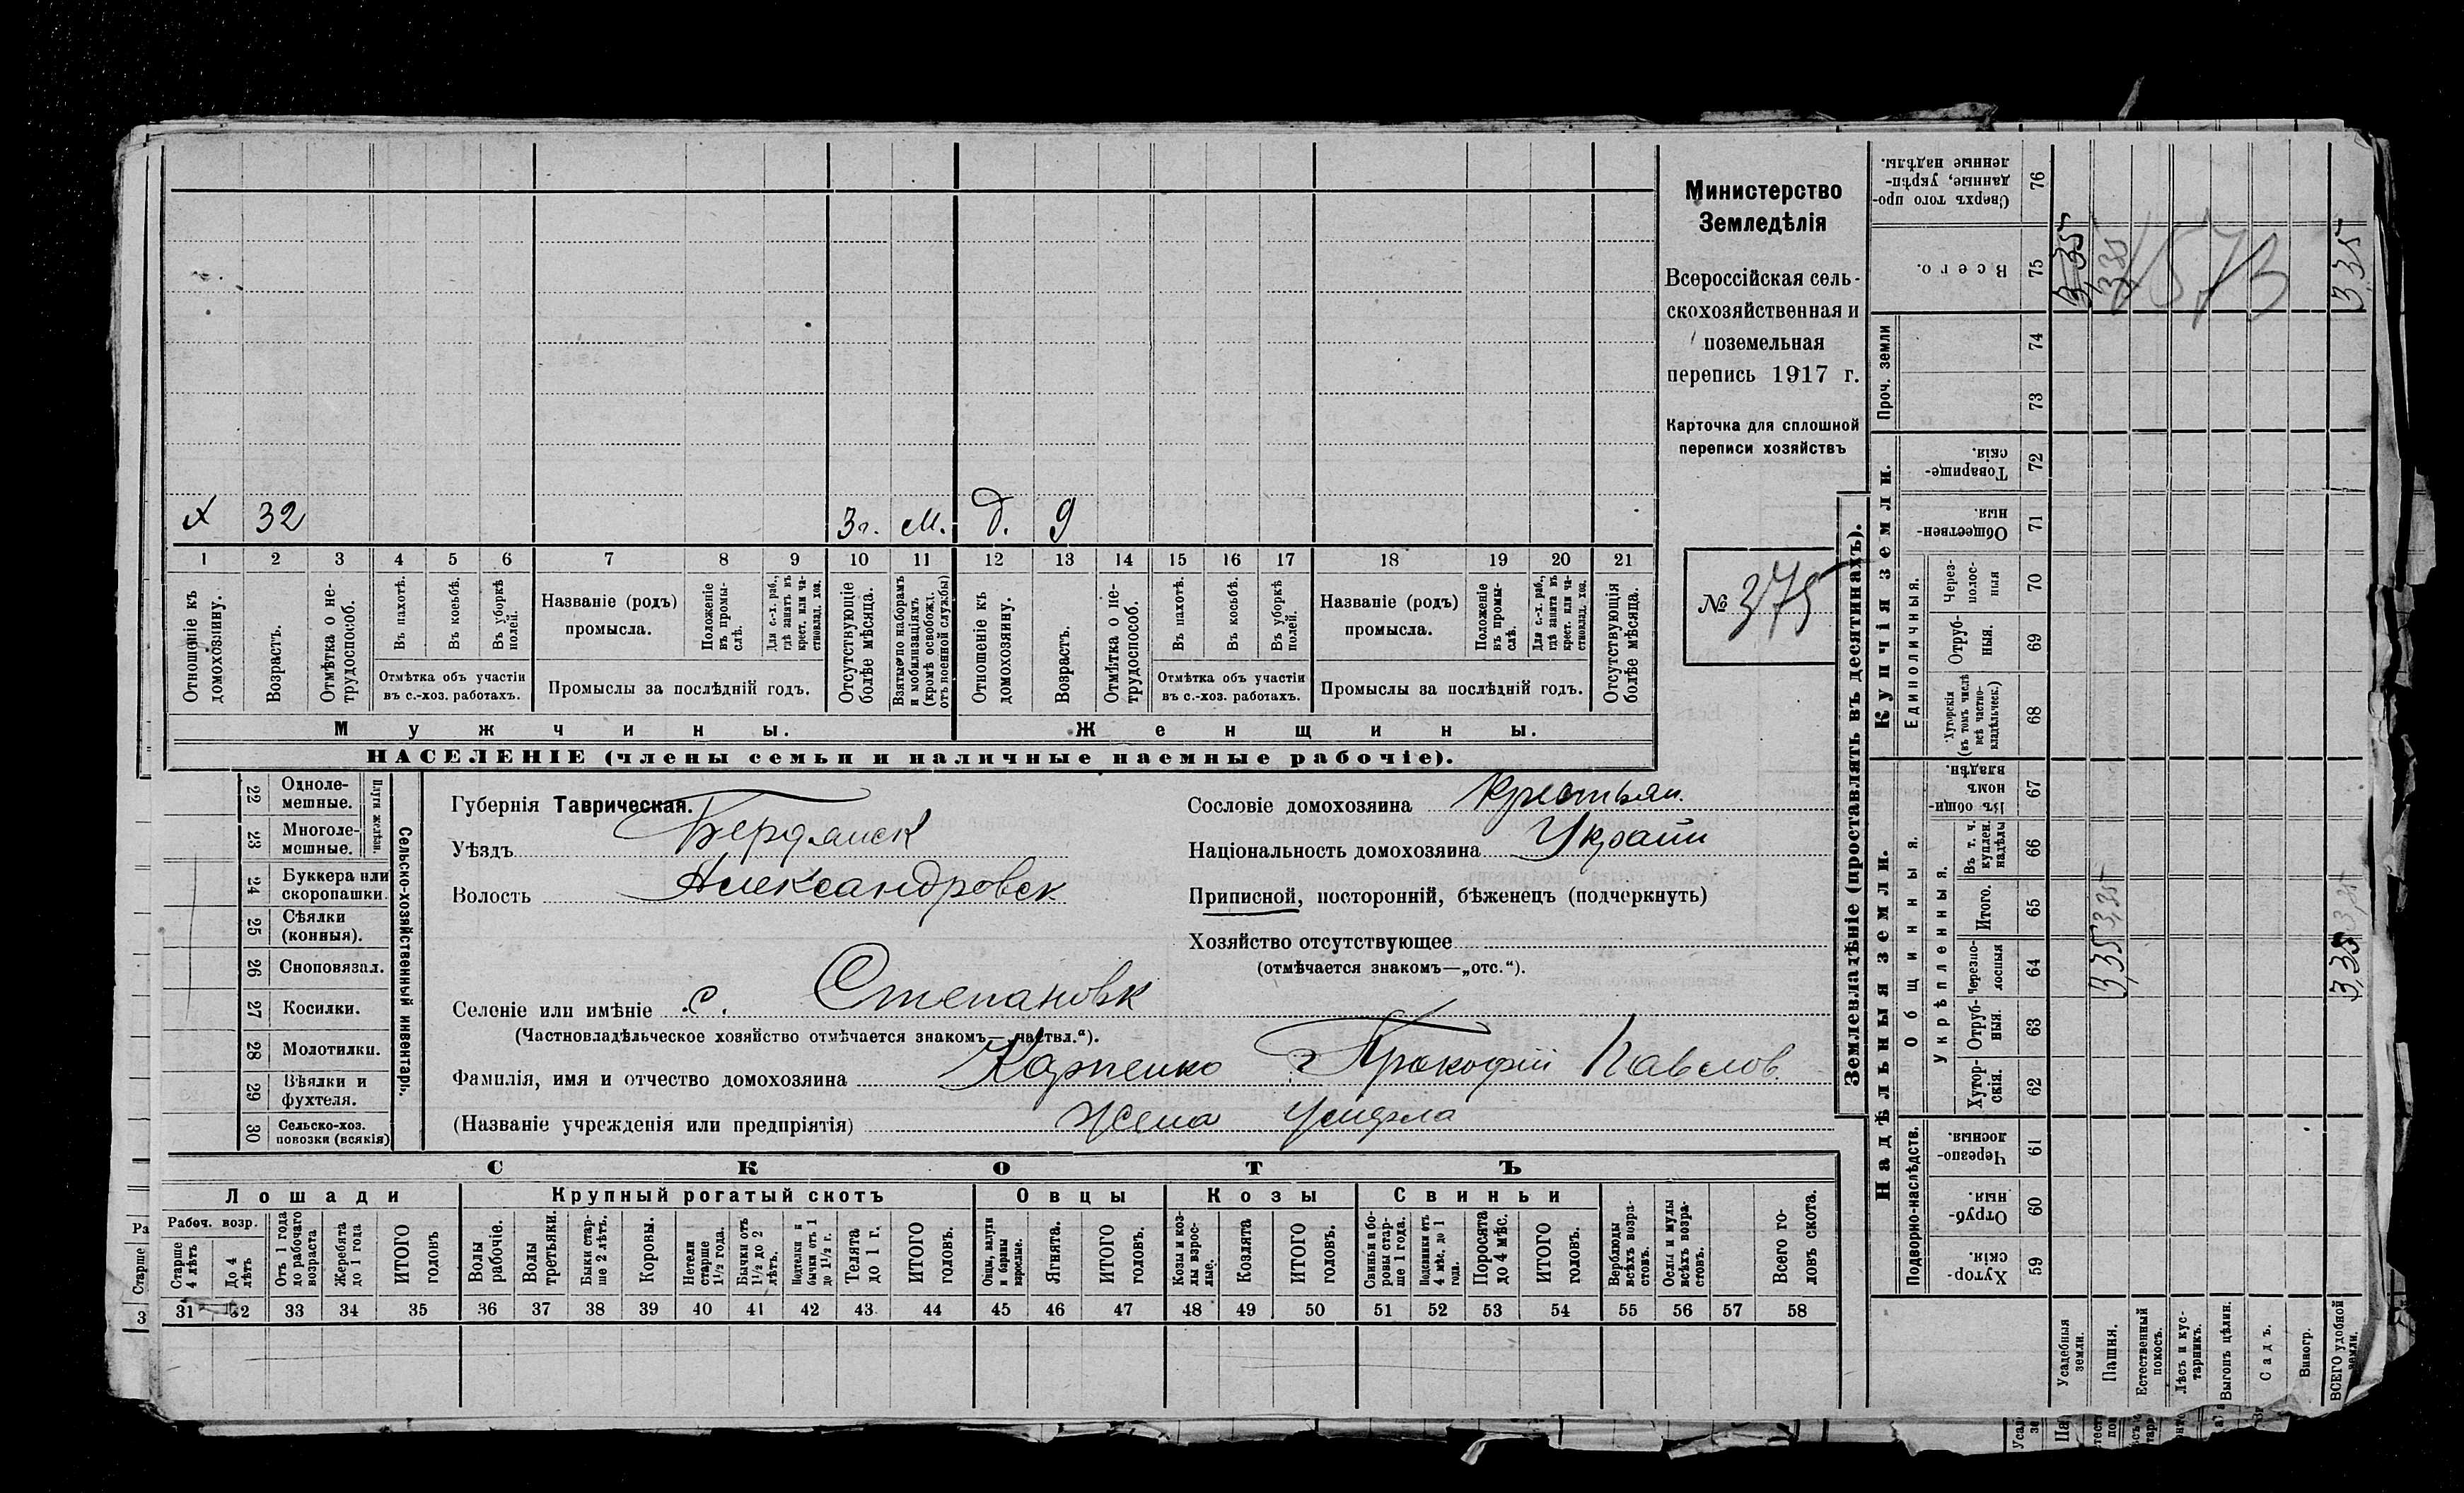 х 32 3 г. м. д. 9
1 2 3 4 5 6 7 8 9 10 11 12 13 14 15 16 17 18 19 20 21
Отношеніе къ домохозяину.
Возрастъ.
Отмѣтка о не-трудоспособ.
Въ пахотѣ.
Въ косьбѣ.
Въ уборкѣ полей.
Отмѣтка объ участіи
въ с.-хоз. работахъ.
Названіе (родъ)
промысла.
Положеніе въ промы-слѣ.
Для с.-х. раб., гдѣ занятъ въ крест. или ча-стновлад. хоз.
Промыслы за послѣдній годъ.
Отсутствующіе болѣе мѣсяца.
Взятые по наборамъ и мобилизаціямъ (кромѣ освобожд. отъ военной службы)
Отношеніе къ домохозяину.
Возрастъ.
Отмѣтка о не-трудоспособ.
Въ пахотѣ.
Въ косьбѣ.
Въ уборкѣ полей.
Отмѣтка объ участіи
въ с.-хоз. работахъ.
Названіе (родъ)
промысла.
Положеніе въ промы-слѣ.
Для с.-х. раб., гдѣ занята въ крест. или ча-стновлад. хоз.
Промыслы за послѣдній годъ.
Отсутствующія болѣе мѣсяца.
Мужчины. Женщины.
НАСЕЛЕНІЕ (члены семьи и наличные наемные рабочіе).
Министерство
Земледѣлія
Всероссійская сель-
скохозяйственная и
поземельная
перепись 1917 г.
Карточка для сплошной
переписи хозяйствъ
№ 375
22 Одноле-мешные.
23 Многоле-мешные.
Плуги желѣзн.
24 Буккера или скоропашки.
25 Сѣялки (конныя).
26 Сноповязал.
27 Косилки.
28 Молотилки.
29 Вѣялки и фухтеля.
30 Сельско-хоз. повозки (всякія)
Сельско-хозяйственный инвентарь.
Губернія Таврическая.
Уѣздъ Бердянск
Волость Александровск
Селеніе или имѣніе с. Степановк
(Частновладѣльческое хозяйство отмѣчается знакомъ—„частвл.“).
Фамилія, имя и отчество домохозяина Карпенко Прокофій Павлов.
(Названіе учрежденія или предпріятія) Жена умерла
Сословіе домохозяина крестьян.
Національность домохозяина Украин
Приписной, посторонній, бѣженецъ (подчеркнуть)
Хозяйство отсутствующее
(отмѣчается знакомъ—„отс.“).
СКОТЪ
Лошади Крупный рогатый скотъ Овцы Козы Свиньи
Рабоч. возр.
Старше 4 лѣтъ
До 4 лѣтъ
Отъ 1 года до рабочаго возраста
Жеребята до 1 года
ИТОГО головъ
Волы рабочіе.
Волы третьяки.
Быки стар-ше 2 лѣтъ.
Коровы.
Нетели старше 1½ года.
Бычки отъ 1½ до 2 лѣтъ.
Подтелки и бычки отъ 1 до 1½ г.
Телята до 1 г.
ИТОГО головъ.
Овцы, валухи и бараны взрослые.
Ягнята.
ИТОГО головъ.
Козы и коз-лы взрос-лые.
Козлята
ИТОГО головъ.
Свиньи и бо-ровы стар-ше 1 года.
Подсвинки отъ 4 мѣс. до 1 года.
Поросята до 4 мѣс.
ИТОГО головъ.
Верблюды всѣхъ возра-стовъ.
Ослы и мулы всѣхъ возра-стовъ.
Всего го-ловъ скота.
31 32 33 34 35 36 37 38 39 40 41 42 43 44 45 46 47 48 49 50 51 52 53 54 55 56 57 58
Землевладѣніе (проставлять въ десятинахъ).
Надѣльныя земли. Купчія земли. Проч. земли
Подворно-наслѣдств.
Общинныя.
Укрѣпленныя.
Единоличныя.
Хутор-скія. 59
Отруб-ныя. 60
Черезпо-лосныя. 61
Хутор-скія. 62
Отруб-ныя. 63
Черезпо-лосныя 64
Итого. 65
Въ т. ч. куплен. надѣлы 66
Въ общин-номъ владѣн. 67
Хуторскія (въ томъ числѣ всѣ частно-владѣльческ.) 68
Отруб-ныя. 69
Через-полос-ныя 70
Обществен-ныя. 71
Товарище-скія. 72
73
74
Всего. 75
Сверхъ того про-данные, укрѣп-ленные надѣлы. 76
Усадебныя земли. 3,35
Пашня. 3,35 3,35 3,35
Естественный покосъ.
Лѣсъ и кус-тарникъ.
Выгонъ цѣлин.
Садъ.
Виногр.
ВСЕГО удобной земли. 3,35 3,35 3,35